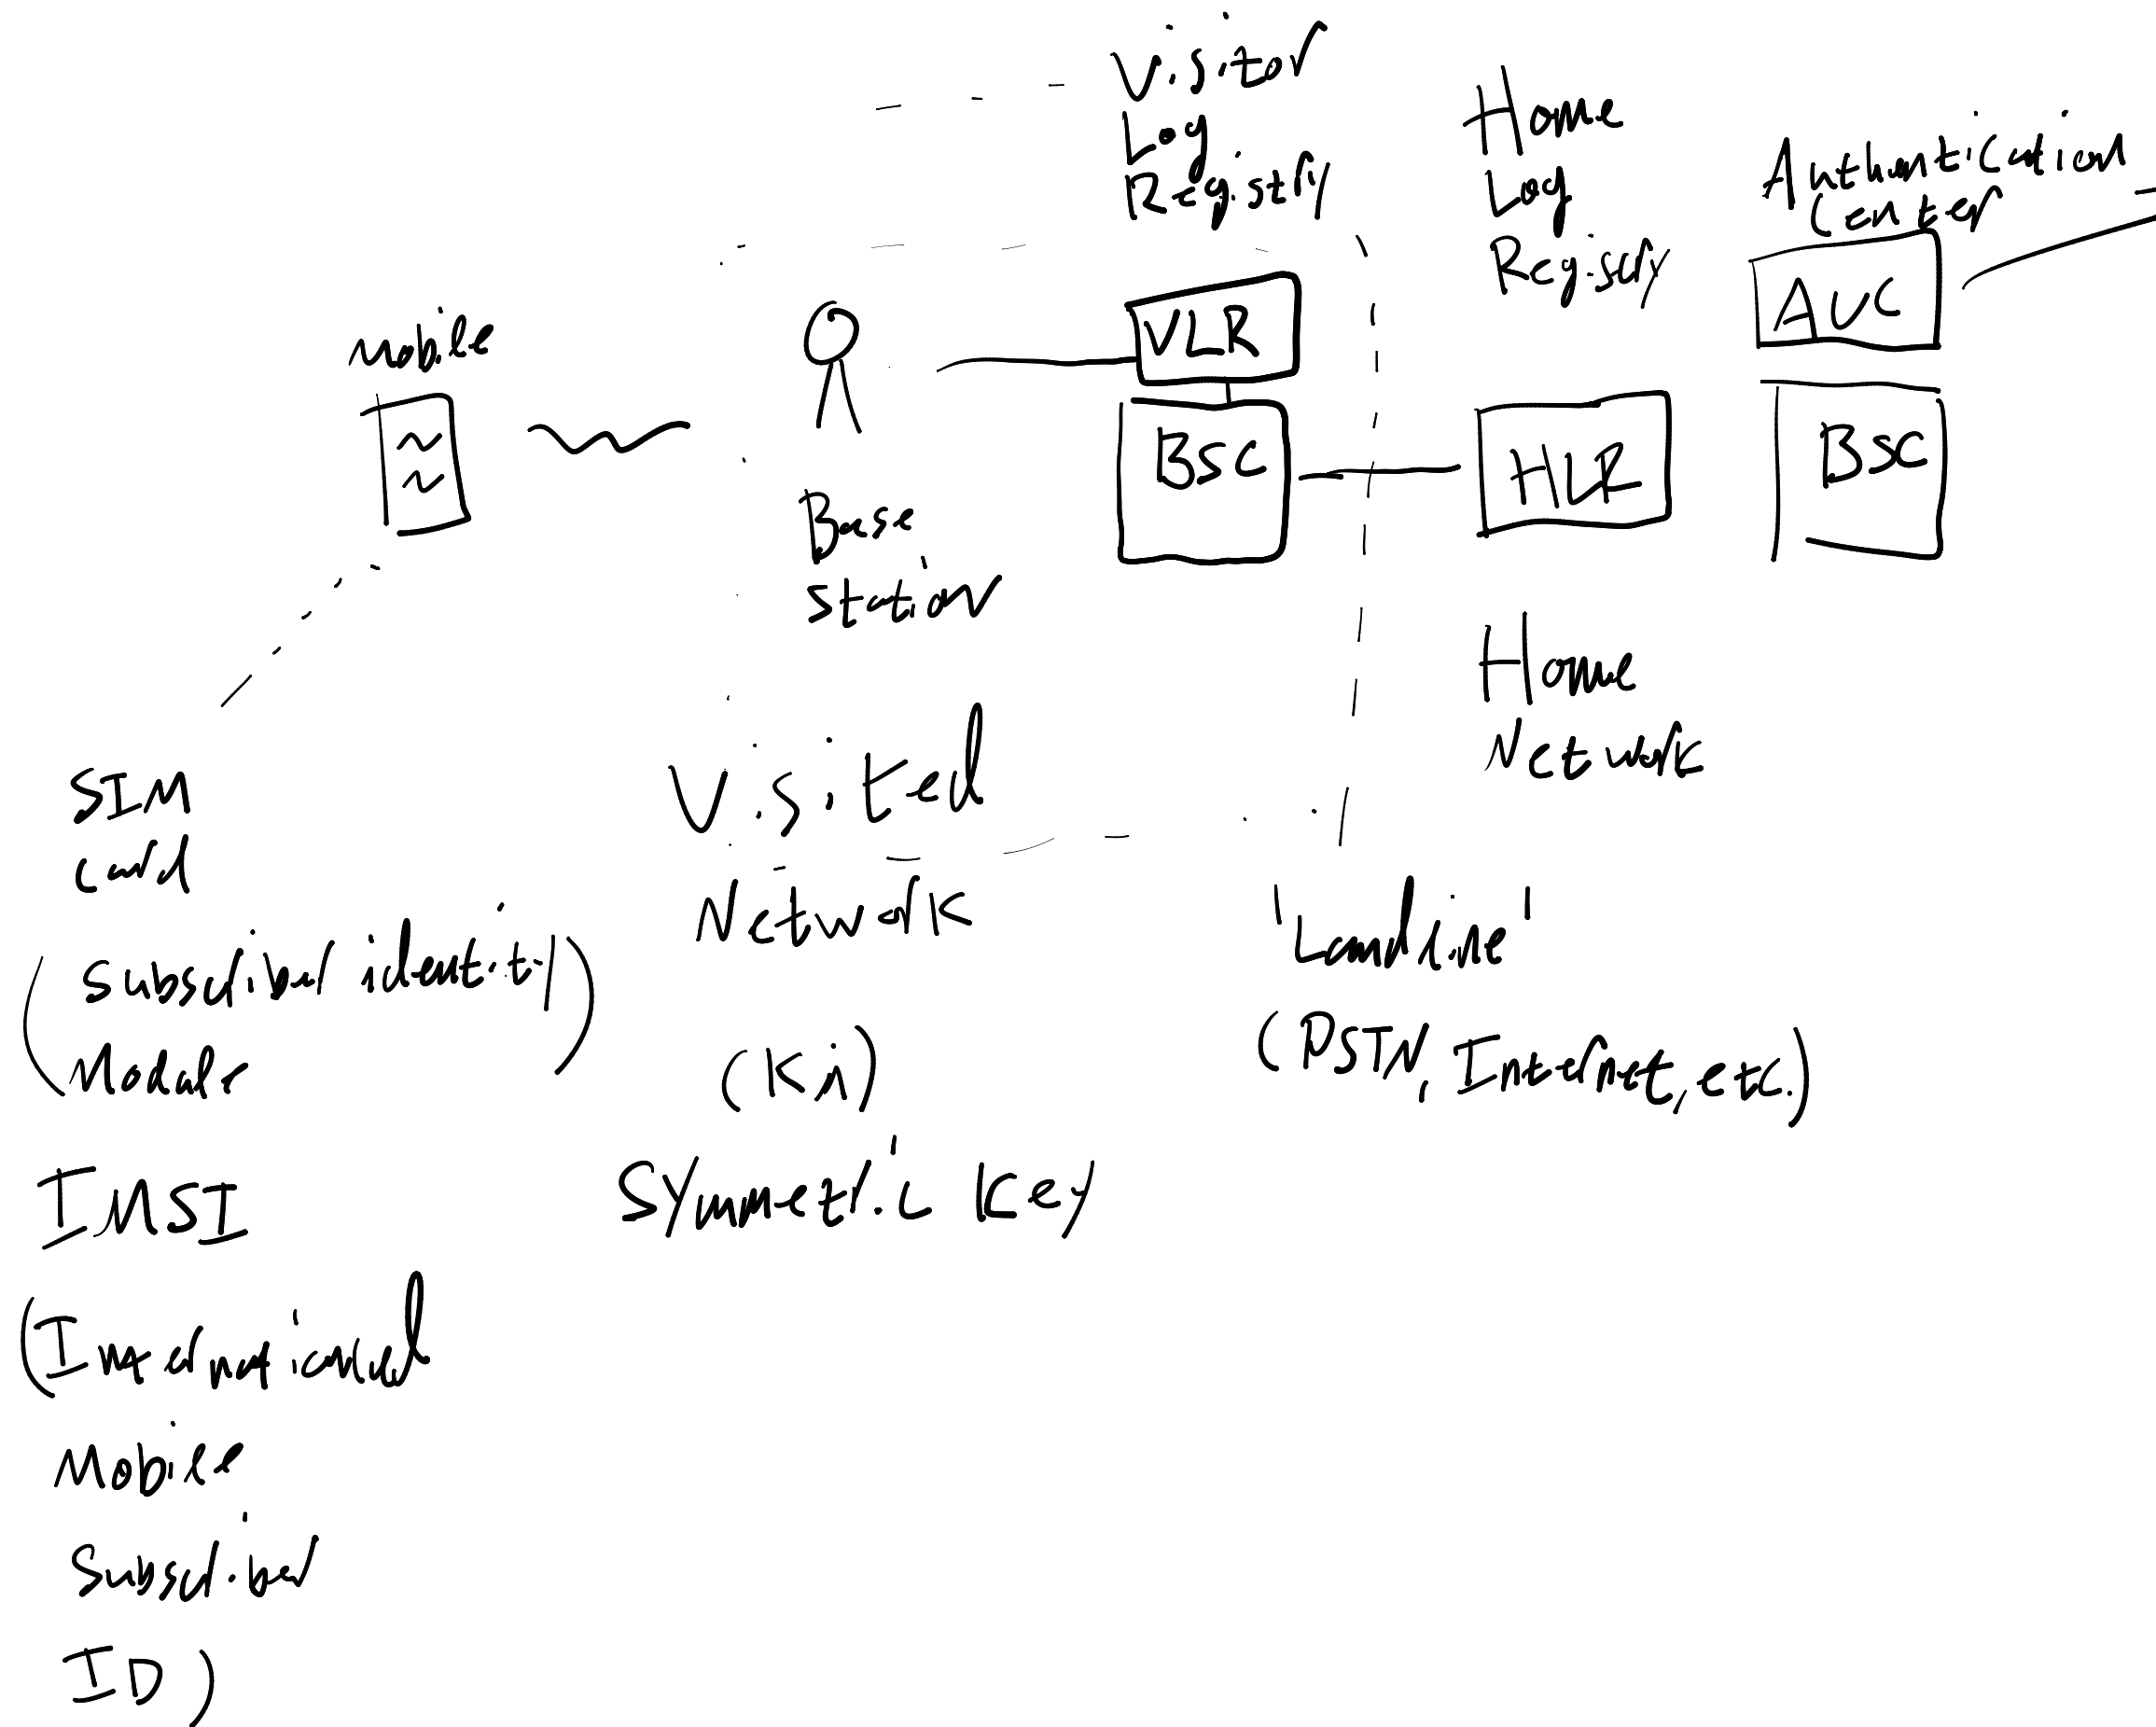 Visitor
Log
Registry
Home
Log
Registry
Authentication
Center
AUC
VLR
mobile
BSC
HLR
BSC
Base
station
Home
Network
Visited
Network
SIM
card
(Subscriber identity
Module)
'Landline'
(PSTN, Internet, etc.)
(Ki)
Symmetric Key
IMSI
(International
Mobile
Subscriber
ID)